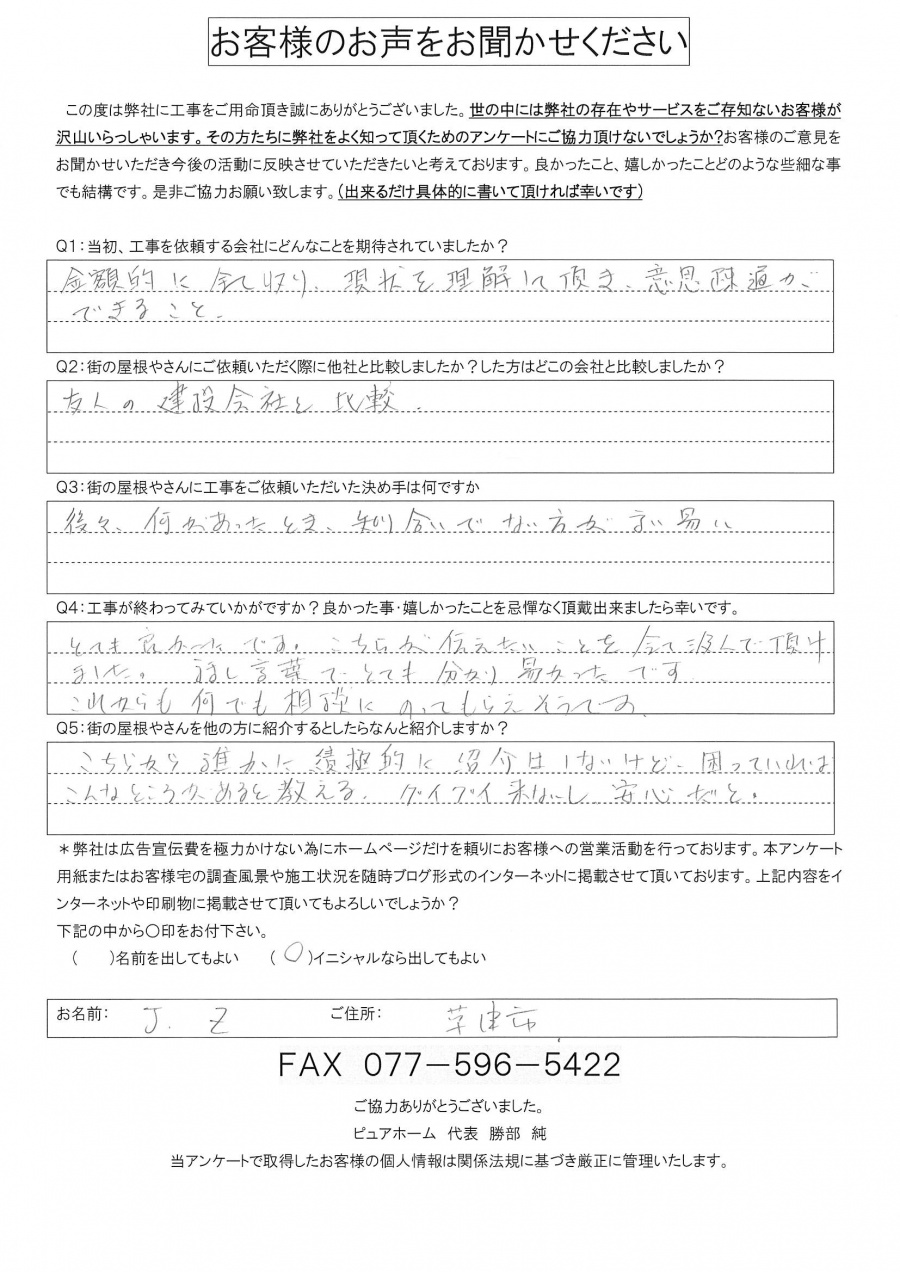 お客様のお声をお聞かせください
この度は弊社に工事をご用命頂き誠にありがとうございました。世の中には弊社の存在やサービスをご存知ないお客様が
沢山いらっしゃいます。その方たちに弊社をよく知って頂くためのアンケートにご協力頂けないでしょうか?お客様のご意見を
お聞かせいただき今後の活動に反映させていただきたいと考えております。良かったこと、嬉しかったことどのような些細な事
でも結構です。是非ご協力お願い致します。(出来るだけ具体的に書いて頂ければ幸いです)
Q1:当初、工事を依頼する会社にどんなことを期待されていましたか?
金額的に 現状を理解して頂き、意思疎通が
できること。
Q2:街の屋根やさんにご依頼いただく際に他社と比較しましたか?した方はどこの会社と比較しましたか?
友人の建設会社と比較.
Q3:街の屋根やさんに工事をご依頼いただいた決め手は何ですか
後々、何かあったとき、知り合いでない方が言い易い
Q4:工事が終わってみていかがですか?良かった事・嬉しかったことを忌憚なく頂戴出来ましたら幸いです。
とても良かったです。こちらが伝えたいことを全て汲んで頂け
ました。話し言葉で、とても分かり易かったです
これからも何でも相談にのってもらえそうです。
Q5:街の屋根やさんを他の方に紹介するとしたらなんと紹介しますか?
こちらから誰かに積極的に紹介はしないけど、困っていれば
こんなところがあると教える。グイグイ来ないし安心だと。
*弊社は広告宣伝費を極力かけない為にホームページだけを頼りにお客様への営業活動を行っております。本アンケート
用紙またはお客様宅の調査風景や施工状況を随時ブログ形式のインターネットに掲載させて頂いております。上記内容をイ
ンターネットや印刷物に掲載させて頂いてもよろしいでしょうか?
下記の中から○印をお付下さい。
( )名前を出してもよい (○)イニシャルなら出してもよい
お名前: J. Z ご住所: 草津市
FAX 077-596-5422
ご協力ありがとうございました。
ピュアホーム 代表 勝部 純
当アンケートで取得したお客様の個人情報は関係法規に基づき厳正に管理いたします。